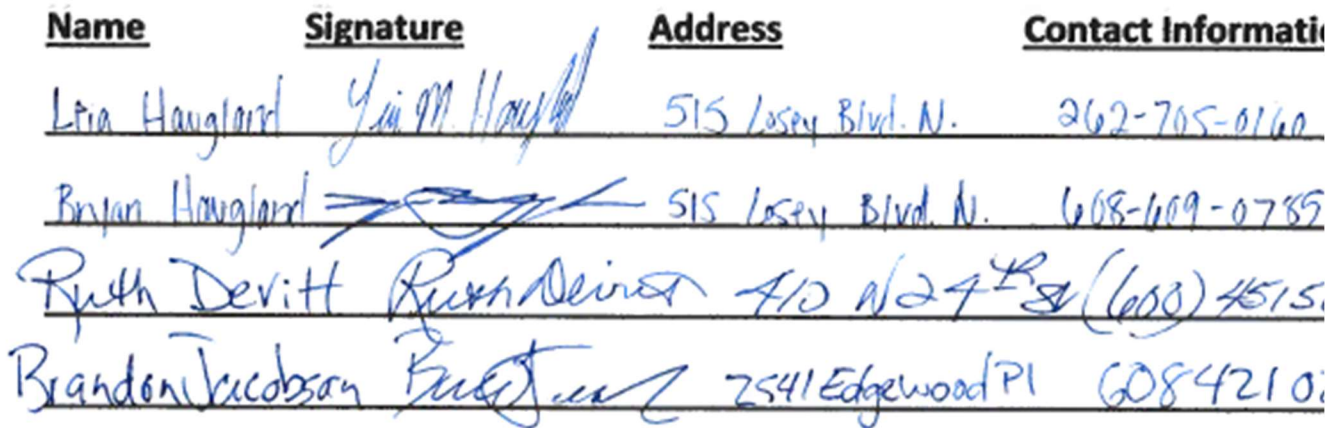 Name Signature Address Contact Informati
Haugland 515 Losey Blvd. N. 262-705-0160
Bryan Haugland 515 Losey Blvd. N. 608-609-0785
Ruth Devitt Ruth Devitt 410 N 24th St (608) 4515
Brandon Jacobson 2541 Edgewood Pl 608421 02